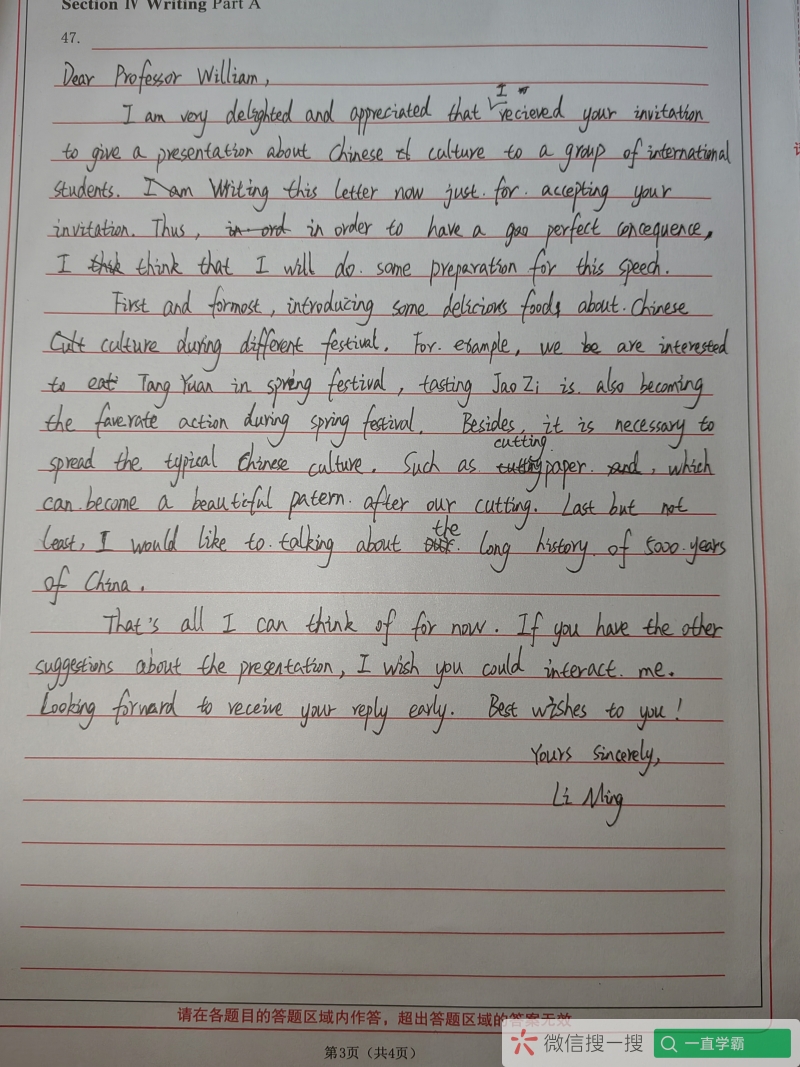 Section IV Writing Part A
47.
Dear Professor William,
I am very delighted and appreciated that I recieved your invitation
to give a presentation about Chinese culture to a group of international
students. I am Writing this letter now just. for. accepting your
invitation. Thus, in ord in order to have a goo perfect concequence,
I think think that I will do. some preparation for this speech.
First and formost, introducing some delicious foods about. Chinese
Cult culture during different festival. For. example, we be are interested
to eat Tang Yuan in spring festival, tasting Jao Zi is. also becoming
the faverate action during spring festival. Besides, it is necessary to
spread the typical Chinese culture. Such as cutting paper. and, which
can become a beautiful patern. after our cutting. Last but not
least, I would like to. talking about the long history. of 5000.years
of China.
That's all I can think of for now. If you have the other
suggestions about the presentation, I wish you could interact. me.
Looking forward to receive your reply early. Best wishes to you!
Yours sincerely,
Li Ming
请在各题目的答题区域内作答，超出答题区域的答案无效
第3页（共4页）
微信搜一搜
一直学霸